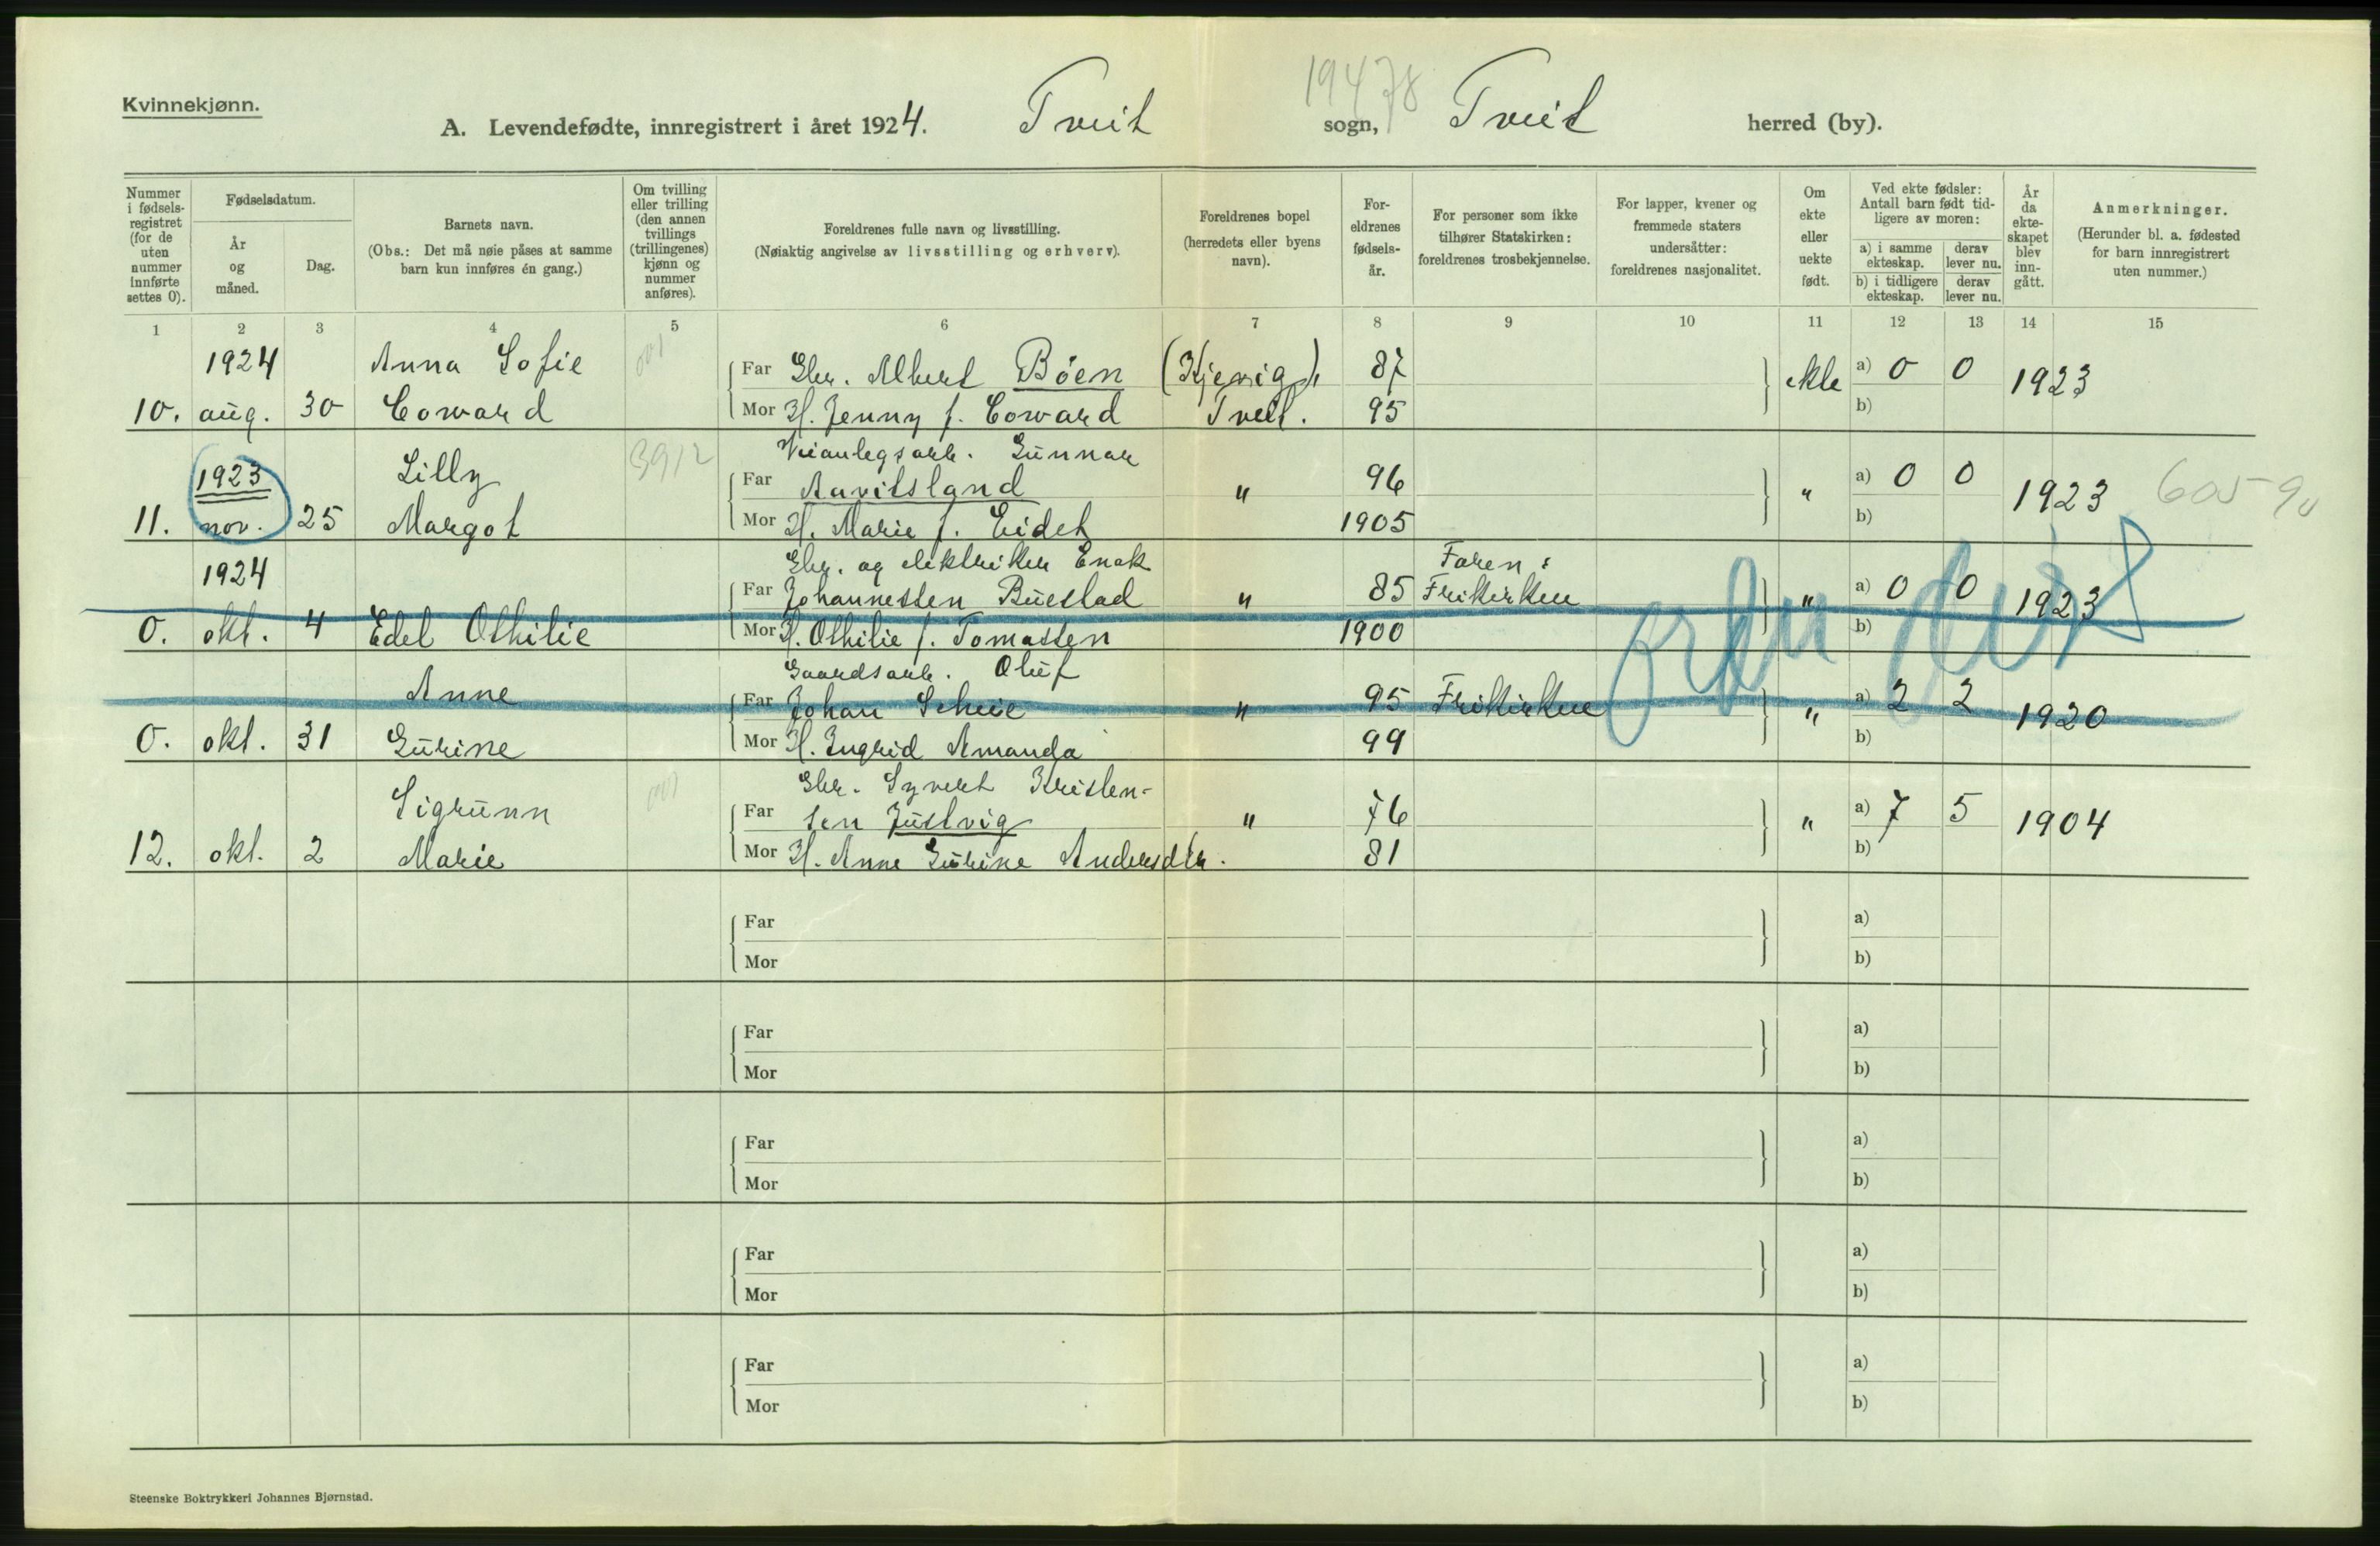 Kvinnekjønn.
19478
A. Levendefødte, innregistrert i året 1924. Tveit sogn, Tveit herred (by).
Nummer i fødsels-registret (for de uten nummer innførte settes 0).
Fødselsdatum.
År og måned.
Dag.
Barnets navn.
(Obs.: Det må nøie påses at samme barn kun innføres én gang.)
Om tvilling eller trilling (den annen tvillings (trillingenes) kjønn og nummer anføres).
Foreldrenes fulle navn og livsstilling.
(Nøiaktig angivelse av livsstilling og erhverv).
Foreldrenes bopel (herredets eller byens navn).
For-eldrenes fødsels-år.
For personer som ikke tilhører Statskirken: foreldrenes trosbekjennelse.
For lapper, kvener og fremmede staters undersåtter: foreldrenes nasjonalitet.
Om ekte eller uekte født.
Ved ekte fødsler: Antall barn født tid-ligere av moren:
a) i samme ekteskap.
derav lever nu.
b) i tidligere ekteskap.
derav lever nu.
År da ekte-skapet blev inn-gått.
Anmerkninger.
(Herunder bl. a. fødested for barn innregistrert uten nummer.)
1 2 3 4 5 6 7 8 9 10 11 12 13 14 15
1924 Anna Sofie Far Gbr. Albert Böen (Kjevig), 87 ekte a) 0 0 1923
10. aug. 30 Coward Mor H. Jenny f. Coward Tveit. 95 b)
3912 Veianlegsarb. Gunnar
1923 Lilly Far Aavitsland " 96 " a) 0 0 1923
11. nov. 25 Margot Mor H. Marie f. Eidet 1905 b)
1924 Gbr. og elektriker Enok Faren:
Far Johannessen Buestad " 85 Frikirken " a) 0 0 1923
0. okt. 4 Edel Othilie Mor H. Othilie f. Tomassen 1900 b)
Gaardsarb. Oluf
Anne Far Johan Scheie " 95 Frikirken " a) 2 2 1920
0. okt. 31 Gurine Mor H. Ingrid Amanda 99 b)
Gbr. Syvert Kristen-
Sigrunn Far sen Justvig " 76 " a) 7 5 1904
12. okt. 2 Marie Mor H. Anne Gurine Andersdtr. 81 b)
Far a)
Mor b)
Far a)
Mor b)
Far a)
Mor b)
Far a)
Mor b)
Far a)
Mor b)
Steenske Boktrykkeri Johannes Bjørnstad.